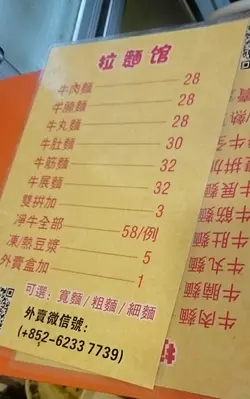 拉麵馆
牛肉麵 28
牛腩麵 28
牛丸麵 28
牛肚麵 30
牛筋麵 32
牛展麵 32
雙拼加 3
淨牛全部 58/例
凍/熱豆漿 5
外賣盒加 1
可選：寬麵/粗麵/細麵
外賣微信號：
(+852-6233 7739)
牛展麵
牛筋麵
牛肚麵
牛丸麵
牛腩麵
牛肉麵